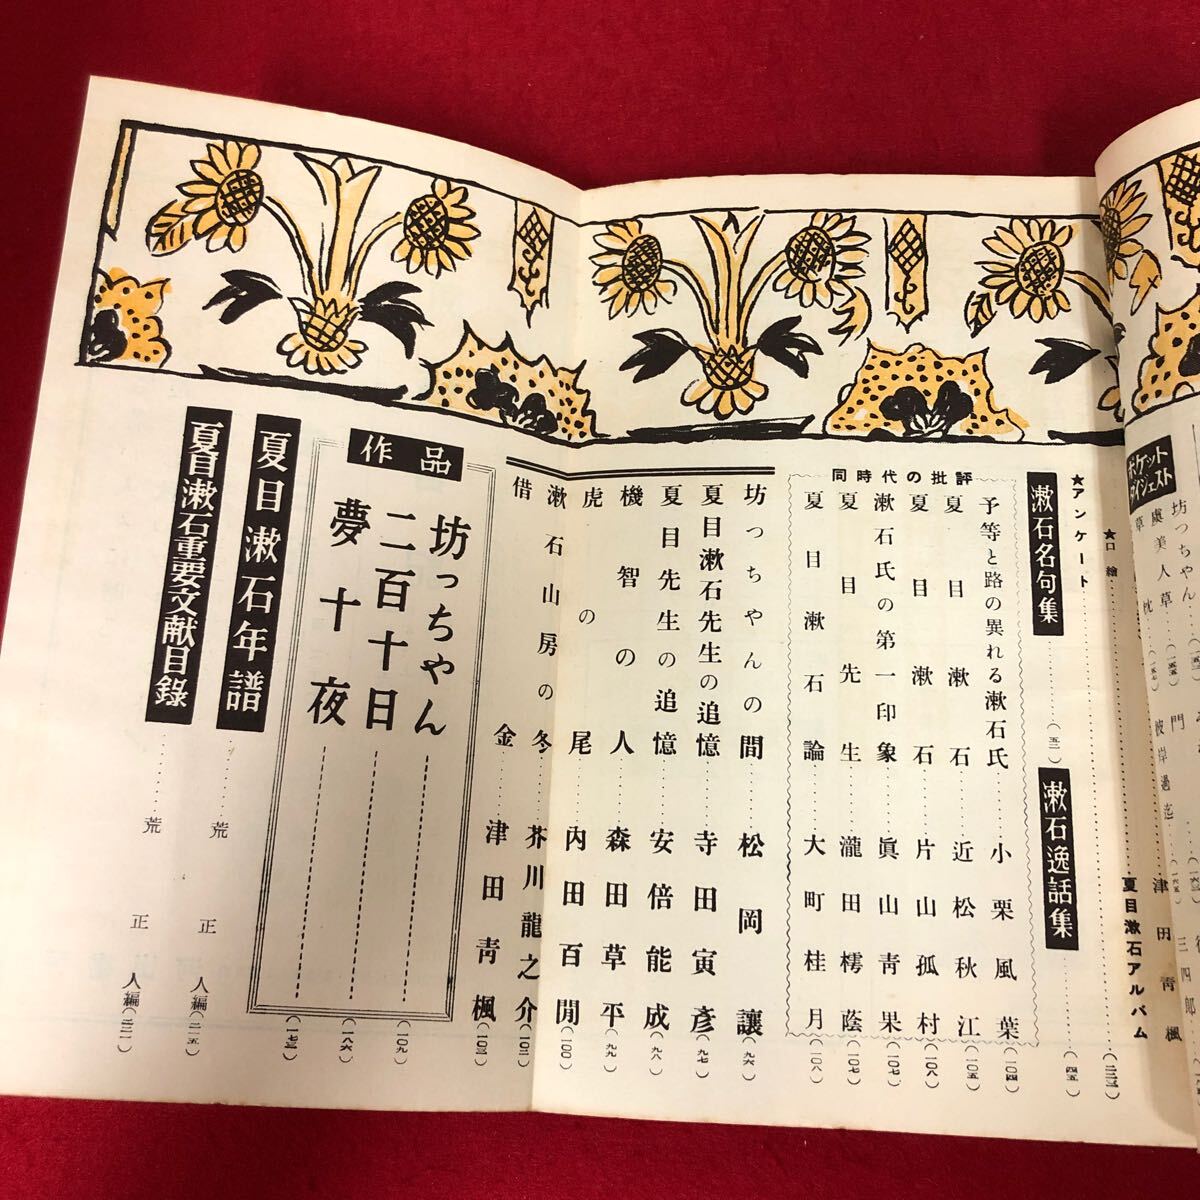 ポケットダイジェスト
坊っちゃん
虞美人草
草枕
門
彼岸過迄
三四郎
★口繪 津田青楓
夏目漱石アルバム
★アンケート
漱石名句集
漱石逸話集
同時代の批評
予等と路の異れる漱石氏 小栗風葉 (一〇四)
夏目漱石 近松秋江 (一〇五)
夏目漱石 片山孤村 (一〇八)
漱石氏の第一印象 眞山青果 (一〇七)
夏目先生 瀧田樗蔭 (一〇七)
夏目漱石論 大町桂月 (一〇八)
坊っちゃんの間 松岡讓 (九六)
夏目漱石先生の追憶 寺田寅彥 (九七)
夏目先生の追憶 安倍能成 (九八)
機智の人 森田草平 (九九)
虎の尾 内田百閒 (一〇〇)
漱石山房の冬 芥川龍之介 (一〇二)
借金 津田青楓 (一〇三)
作品
坊っちゃん (一〇九)
二百十日 (一八六)
夢十夜 (一七三)
夏目漱石年譜 荒正人編 (二一五)
夏目漱石重要文献目錄 荒正人編 (二二二)